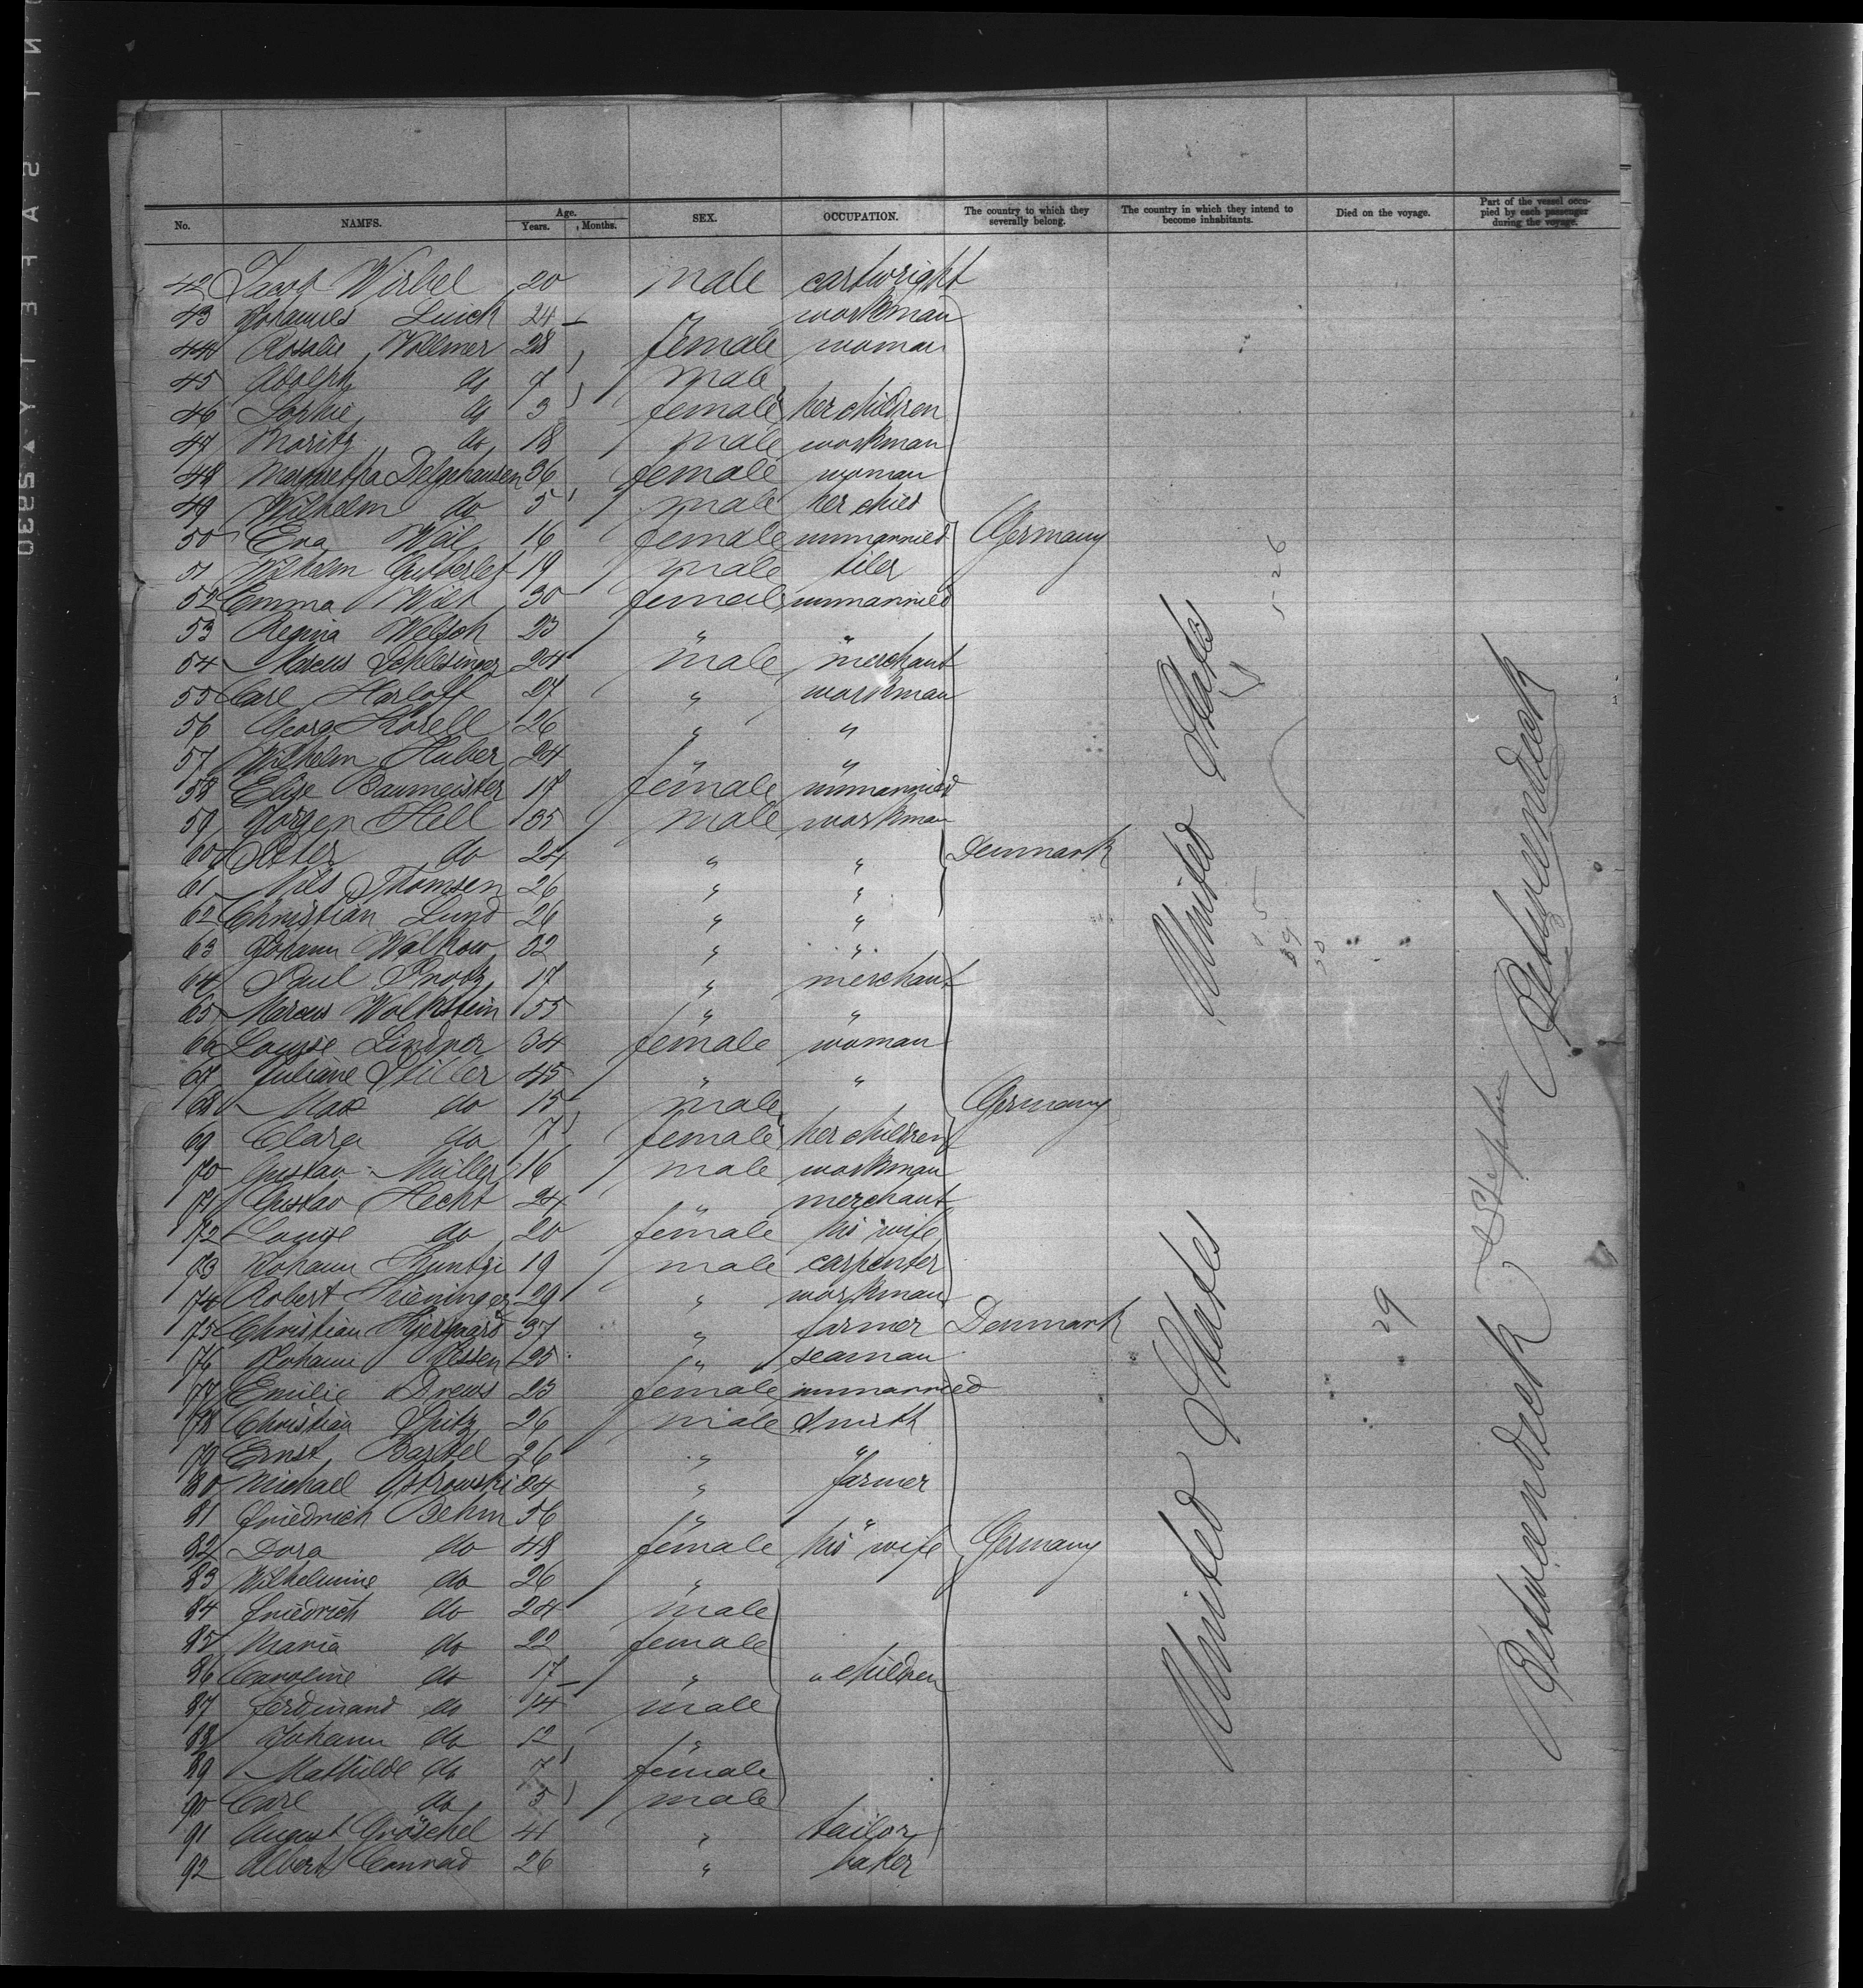 No. NAMES. Age. Years. Months. SEX. OCCUPATION. The country to which they severally belong. The country in which they intend to become inhabitants. Died on the voyage. Part of the vessel occupied by each passenger during the voyage.
42 Jacob Wirbel 20 male cartwright
43 Johannes Luick 24 " workman
44 Rosalie Vollmer 28 female woman
45 Adolph do 7 male
46 Sophie do 3 female her children
47 Moritz do 18 male workman
48 Margaretha Delgehausen 36 female woman
49 Wilhelm do 5 male her child
50 Eva Weil 16 female unmarried Germany
51 Wilhelm Gutberlet 19 male tiler
52 Emma Wilt 30 female unmarried
53 Regina Welsch 23 " "
54 Marcus Schlesinger 24 male merchant
55 Carl Harloff 27 " workman
56 Georg Korell 26 " "
57 Wilhelm Huber 24 " "
58 Elise Baumeister 17 female unmarried
59 Jörgen Hell 35 male workman
60 Peter do 24 " " Denmark
61 Nils Thomsen 26 " "
62 Christian Lund 26 " "
63 Johann Walkow 32 " "
64 Paul 17 " merchant
65 Marcus Wolkstein 55 " "
66 Louise Lindner 34 female woman
67 Juliane Stiller 45 " "
68 Max do 15 male " Germany
69 Clara do 7 female her children
70 Gustav Müller 16 male workman
71 Gustav Hecht 24 " merchant
72 Louise do 20 female his wife
73 Johann Kuntzi 19 male carpenter
74 Robert Trieninger 29 " workman
75 Christian Kjergaard 37 " farmer Denmark
76 Johann Jessen 25 " seaman
77 Emilie Drews 23 female unmarried
78 Christian Spitz 26 male smith
79 Ernst Bartel 26 " "
80 Michael Ostrowski 24 " farmer
81 Friedrich Behm 56 " "
82 Dora do 48 female his wife Germany
83 Wilhelmine do 26 "
84 Friedrich do 24 male
85 Maria do 22 female
86 Caroline do 17 " " children
87 Ferdinand do 14 male
88 Johann do 12 "
89 Mathilde do 7 female
90 Carl do 5 male
91 August Gröschel 41 " tailor
92 Albert Conrad 26 " baker
United States
5-26
29
United States
Betweendeck
Betweendeck